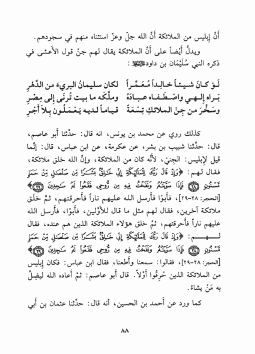 أنّ إبليس من الملائكة أنّ الله جلّ وعزّ استثناه منهم في سجودهم.
ويدلّ أيضاً على أنّ الملائكة يقال لهم جنّ قول الأعشى في
ذكره النبي سُلَيْمان بن داود
لَوْ كَانَ شيءٌ خَالِداً مُعَمَّراً لكان سليمانُ البريءَ من الدَّهْرِ
بَراه إلهي واصْطَفاه عبادَهُ وملَّكَه ما بين تُرنَى إلى مِصْرِ
وسَخَّرَ من جِنِّ الملائكِ تِسْعَةً قياماً لديه يَعْمَلُون بِلا أجْرِ
كذلك روي عن محمد بن يونس، أنه قال: حدّثنا أبو عاصم،
قال: حدّثنا شبيب بن بشر، عن عكرمة، عن ابن عباس، قال: إنّما
قيل لإبليس: الجنيّ، لأنّه كان من الملائكة، وإنّ الله خلق ملائكة،
فقال لهم:
[الحجر: ٢٨-٢٩]، فأبَوْا، فأرسل الله عليهم ناراً فأحرقتهم، ثمّ خلق
ملائكة آخرين، فقال لهم مثل ما قال للأوّلين، فأبَوْا، فأرسل الله
عليهم ناراً فأحرقتهم، ثمّ خلق هؤلاء الملائكة الذين هم عنده، فقال
لهم:
[الحجر: ٢٨-٢٩]، فقالوا: سمعنا وأطعنا، فقال ابن عباس: فكان إبليس
من الملائكة الذين حُرِقُوا أوّلاً. قال أبو عاصم: ثمّ أعاده الله ليضلّ
به مَن يشاء.
كما ورد عن أحمد بن الحسين، أنه قال: حدّثنا عثمان بن أبي
٨٨